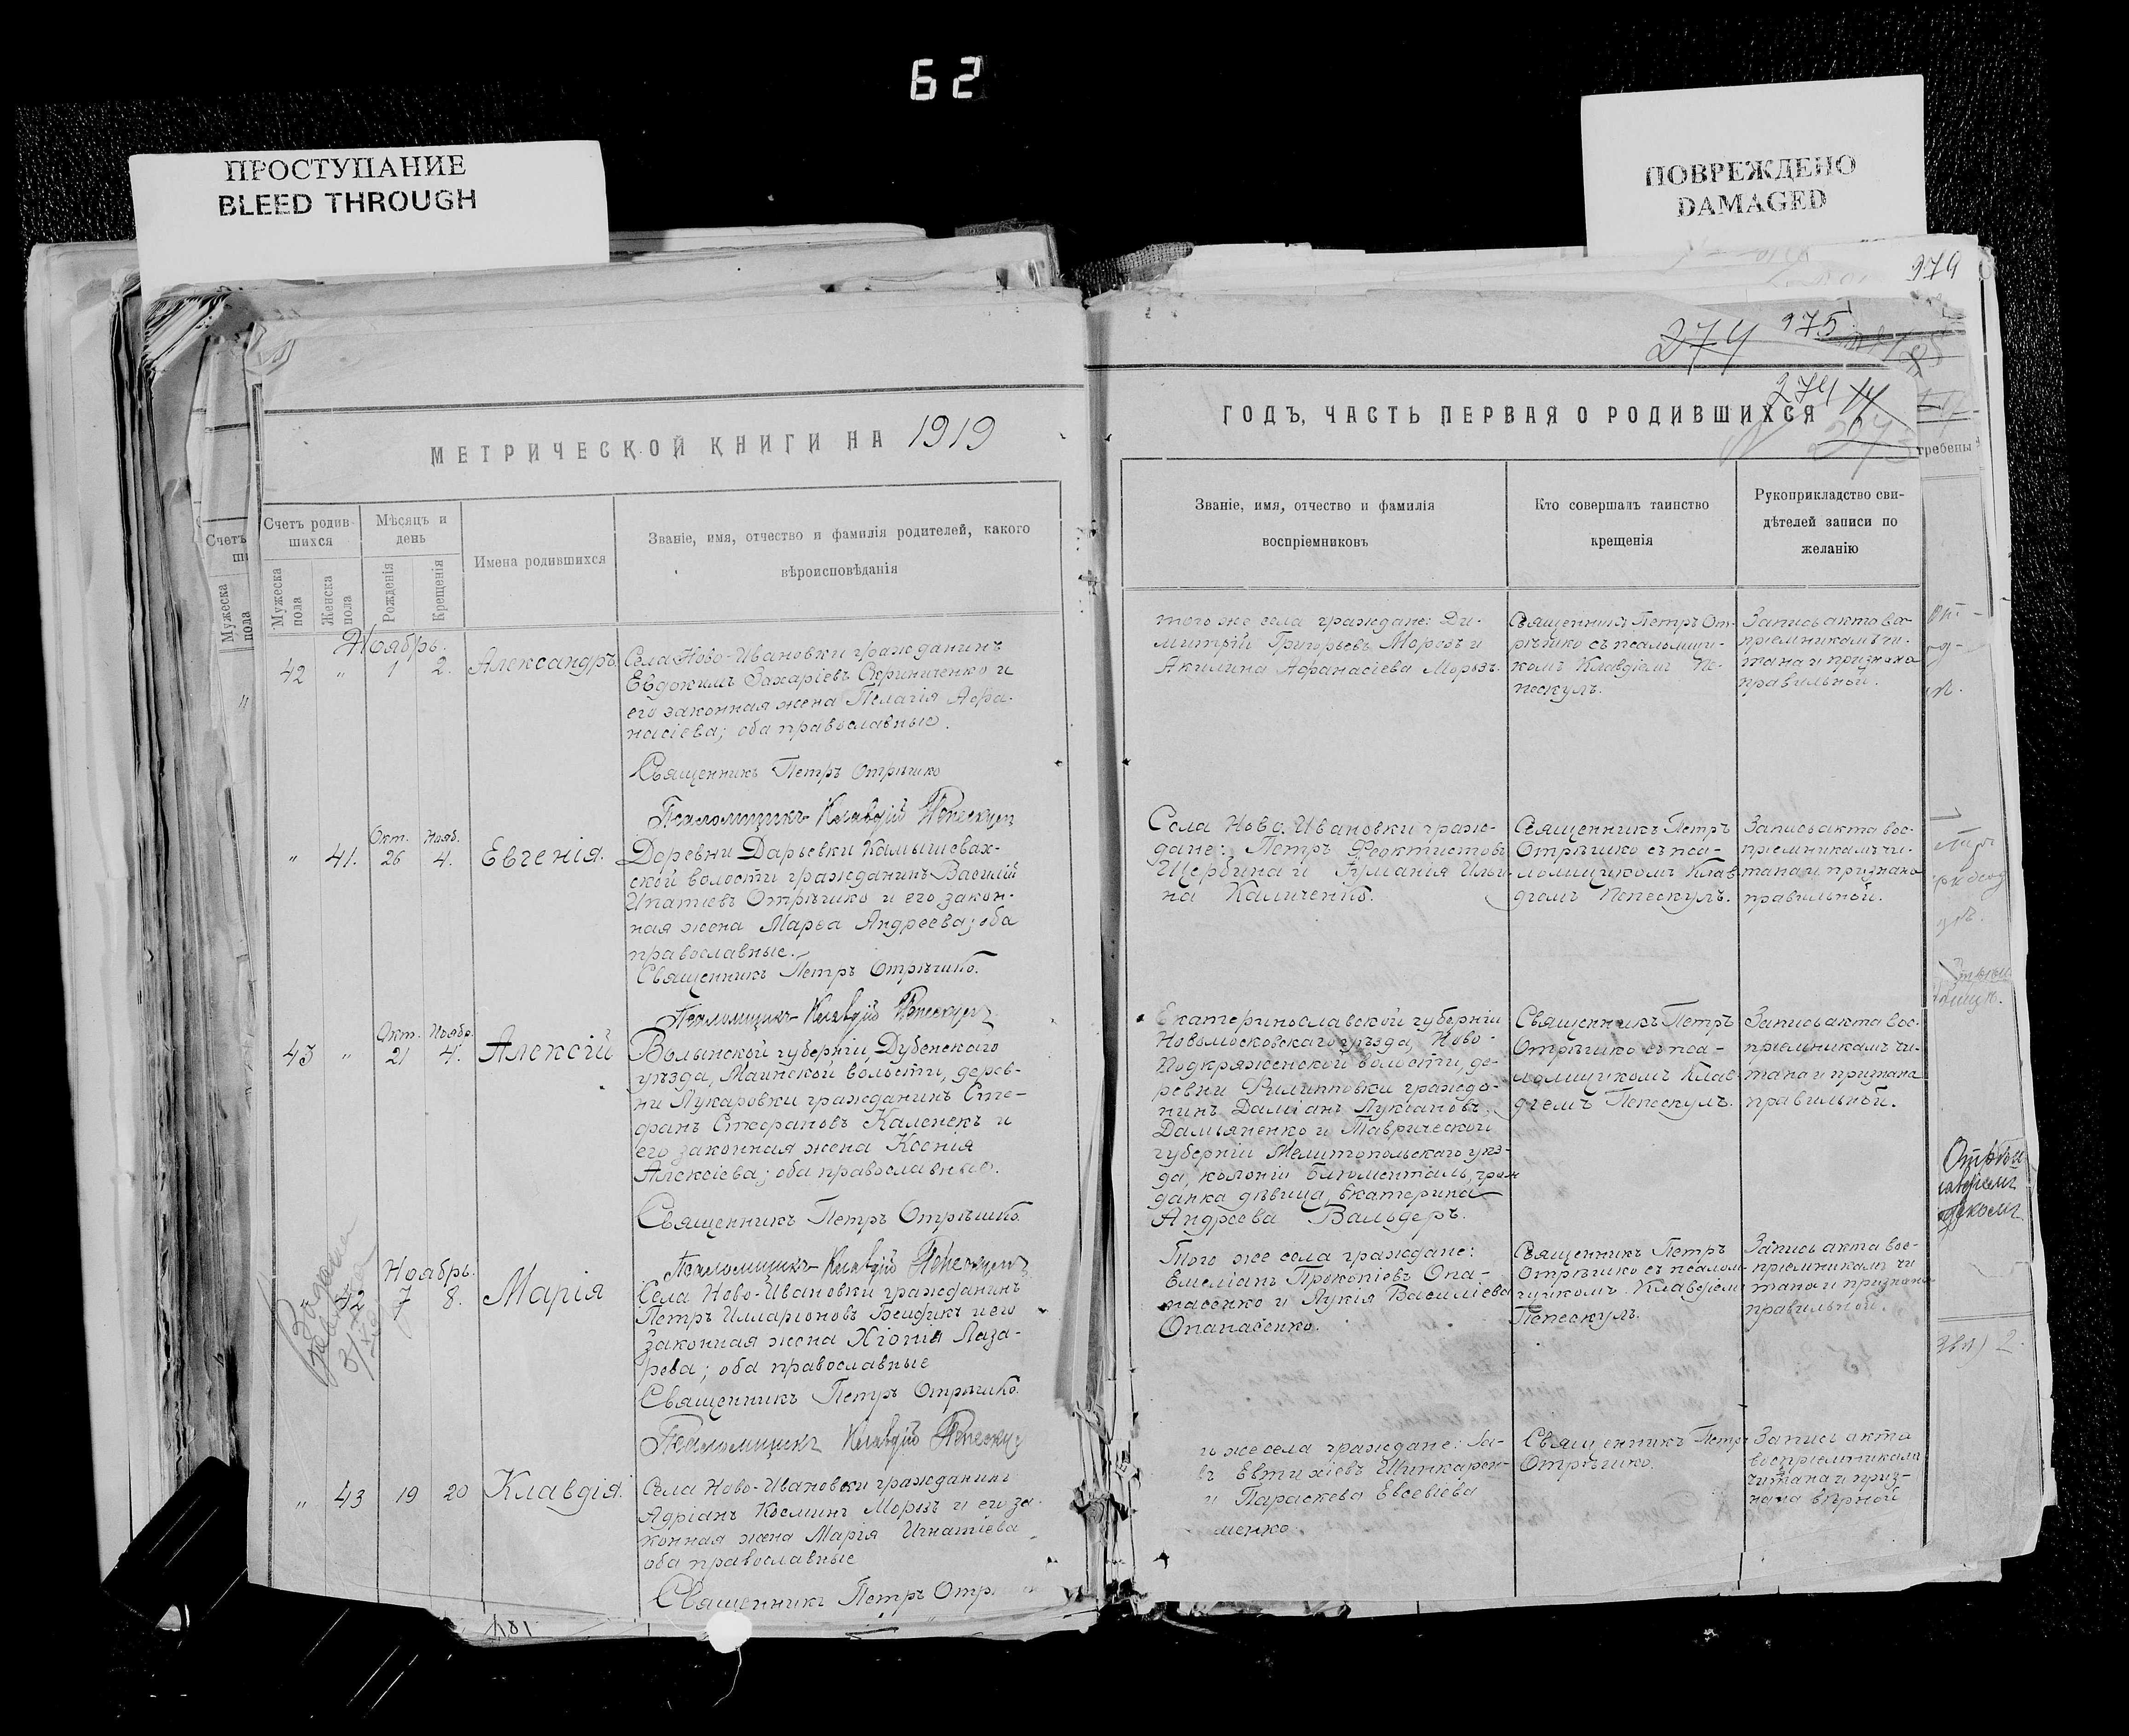 62
ПРОСТУПАНИЕ
BLEED THROUGH
ПОВРЕЖДЕНО
DAMAGED
979
274 975
274
МЕТРИЧЕСКОЙ КНИГИ НА 1919
ГОДЪ, ЧАСТЬ ПЕРВАЯ О РОДИВШИХСЯ
Счетъ родив-
шихся
Мужеска
пола
Женска
пола
Мѣсяцъ и
день
Рожденія
Крещенія
Имена родившихся
Званіе, имя, отчество и фамилія родителей, какого
вѣроисповѣданія
Званіе, имя, отчество и фамилія
воспріемниковъ
Кто совершалъ таинство
крещенія
Рукоприкладство сви-
дѣтелей записи по
желанію
Ноябрь.
42 " 1 2. Александръ
Села Ново-Ивановки гражданинъ
Евдокимъ Захаріевъ Скриниченко и
его законная жена Пелагія Аѳа-
насіева; оба православные.
Священникъ Петръ Отрѣшко
Псаломщикъ Клавдій Пепескулъ
того же села граждане: Ди-
митрій Григорьевъ Морозъ и
Акилина Аѳанасіева Морозъ.
Священникъ Петръ От-
рѣшко съ псаломщи-
комъ Клавдіемъ Пе-
пескулъ.
Запись акта вос-
пріемникамъ чи-
тана и признана
правильной.
Окт. Нояб.
" 41. 26 4. Евгенія.
Деревни Дарьевки Камышевах-
ской волости гражданинъ Василій
Ипатіевъ Отрѣшко и его закон-
ная жена Марѳа Андреева; оба
православные.
Священникъ Петръ Отрѣшко.
Псаломщикъ Клавдій Пепескулъ
Села Ново-Ивановки граж-
дане: Петръ Ѳеоктистовъ
Щербина и Ильи-
на Каличенко.
Священникъ Петръ
Отрѣшко съ пса-
ломщикомъ Клав-
діемъ Пепескулъ.
Запись акта вос-
пріемникамъ чи-
тана и признана
правильной.
Окт. Ноябр.
43 " 21 4. Алексій
Волынской губерніи, Дубенскаго
уѣзда, волости, дерев-
ни гражданинъ Сте-
фанъ Стефановъ Каленекъ и
его законная жена Ксенія
Алексіева; оба православные.
Священникъ Петръ Отрѣшко.
Псаломщикъ Клавдій Пепескулъ
Екатеринославской губерніи
Новомосковскаго уѣзда, Ново-
Подкряженской волости, де-
ревни Филиповки гражда-
нинъ Даміанъ Лукіановъ
Дамьяненко и Таврической
губерніи Мелитопольскаго уѣз-
да, колоніи Блюменталь, граж
данка дѣвица, Екатерина
Андреева Вальдеръ.
Священникъ Петръ
Отрѣшко съ пса-
ломщикомъ Клав-
діемъ Пепескулъ.
Запись акта вос-
пріемникамъ чи-
тана и признана
правильной.
Ноябрь.
42 7 8. Марія
Села Ново-Ивановки гражданинъ
Петръ Илларіоновъ и его
законная жена Хіонія Лаза-
рева; оба православные
Священникъ Петръ Отрѣшко.
Псаломщикъ Клавдій Пепескулъ
Того же села граждане:
Емеліанъ Прокопіевъ Опа-
насенко и Лукія Василіева
Опанасенко.
Священникъ Петръ
Отрѣшко съ псалом-
щикомъ Клавдіемъ
Пепескулъ.
Запись акта вос-
пріемникамъ чи
тана и признана
правильной.
" 43 19 20 Клавдія.
Села Ново-Ивановки гражданинъ
Адріанъ Косминъ Морозъ и его за-
конная жена Марія Игнатіева
оба православные
Священникъ Петръ Отр
же села граждане:
Евтихіевъ Шинкарен-
и Параскева Евсевіева
менко
Священникъ Петръ
Отрѣшко.
Запись акта
воспріемникамъ
читана и приз-
нана вѣрной